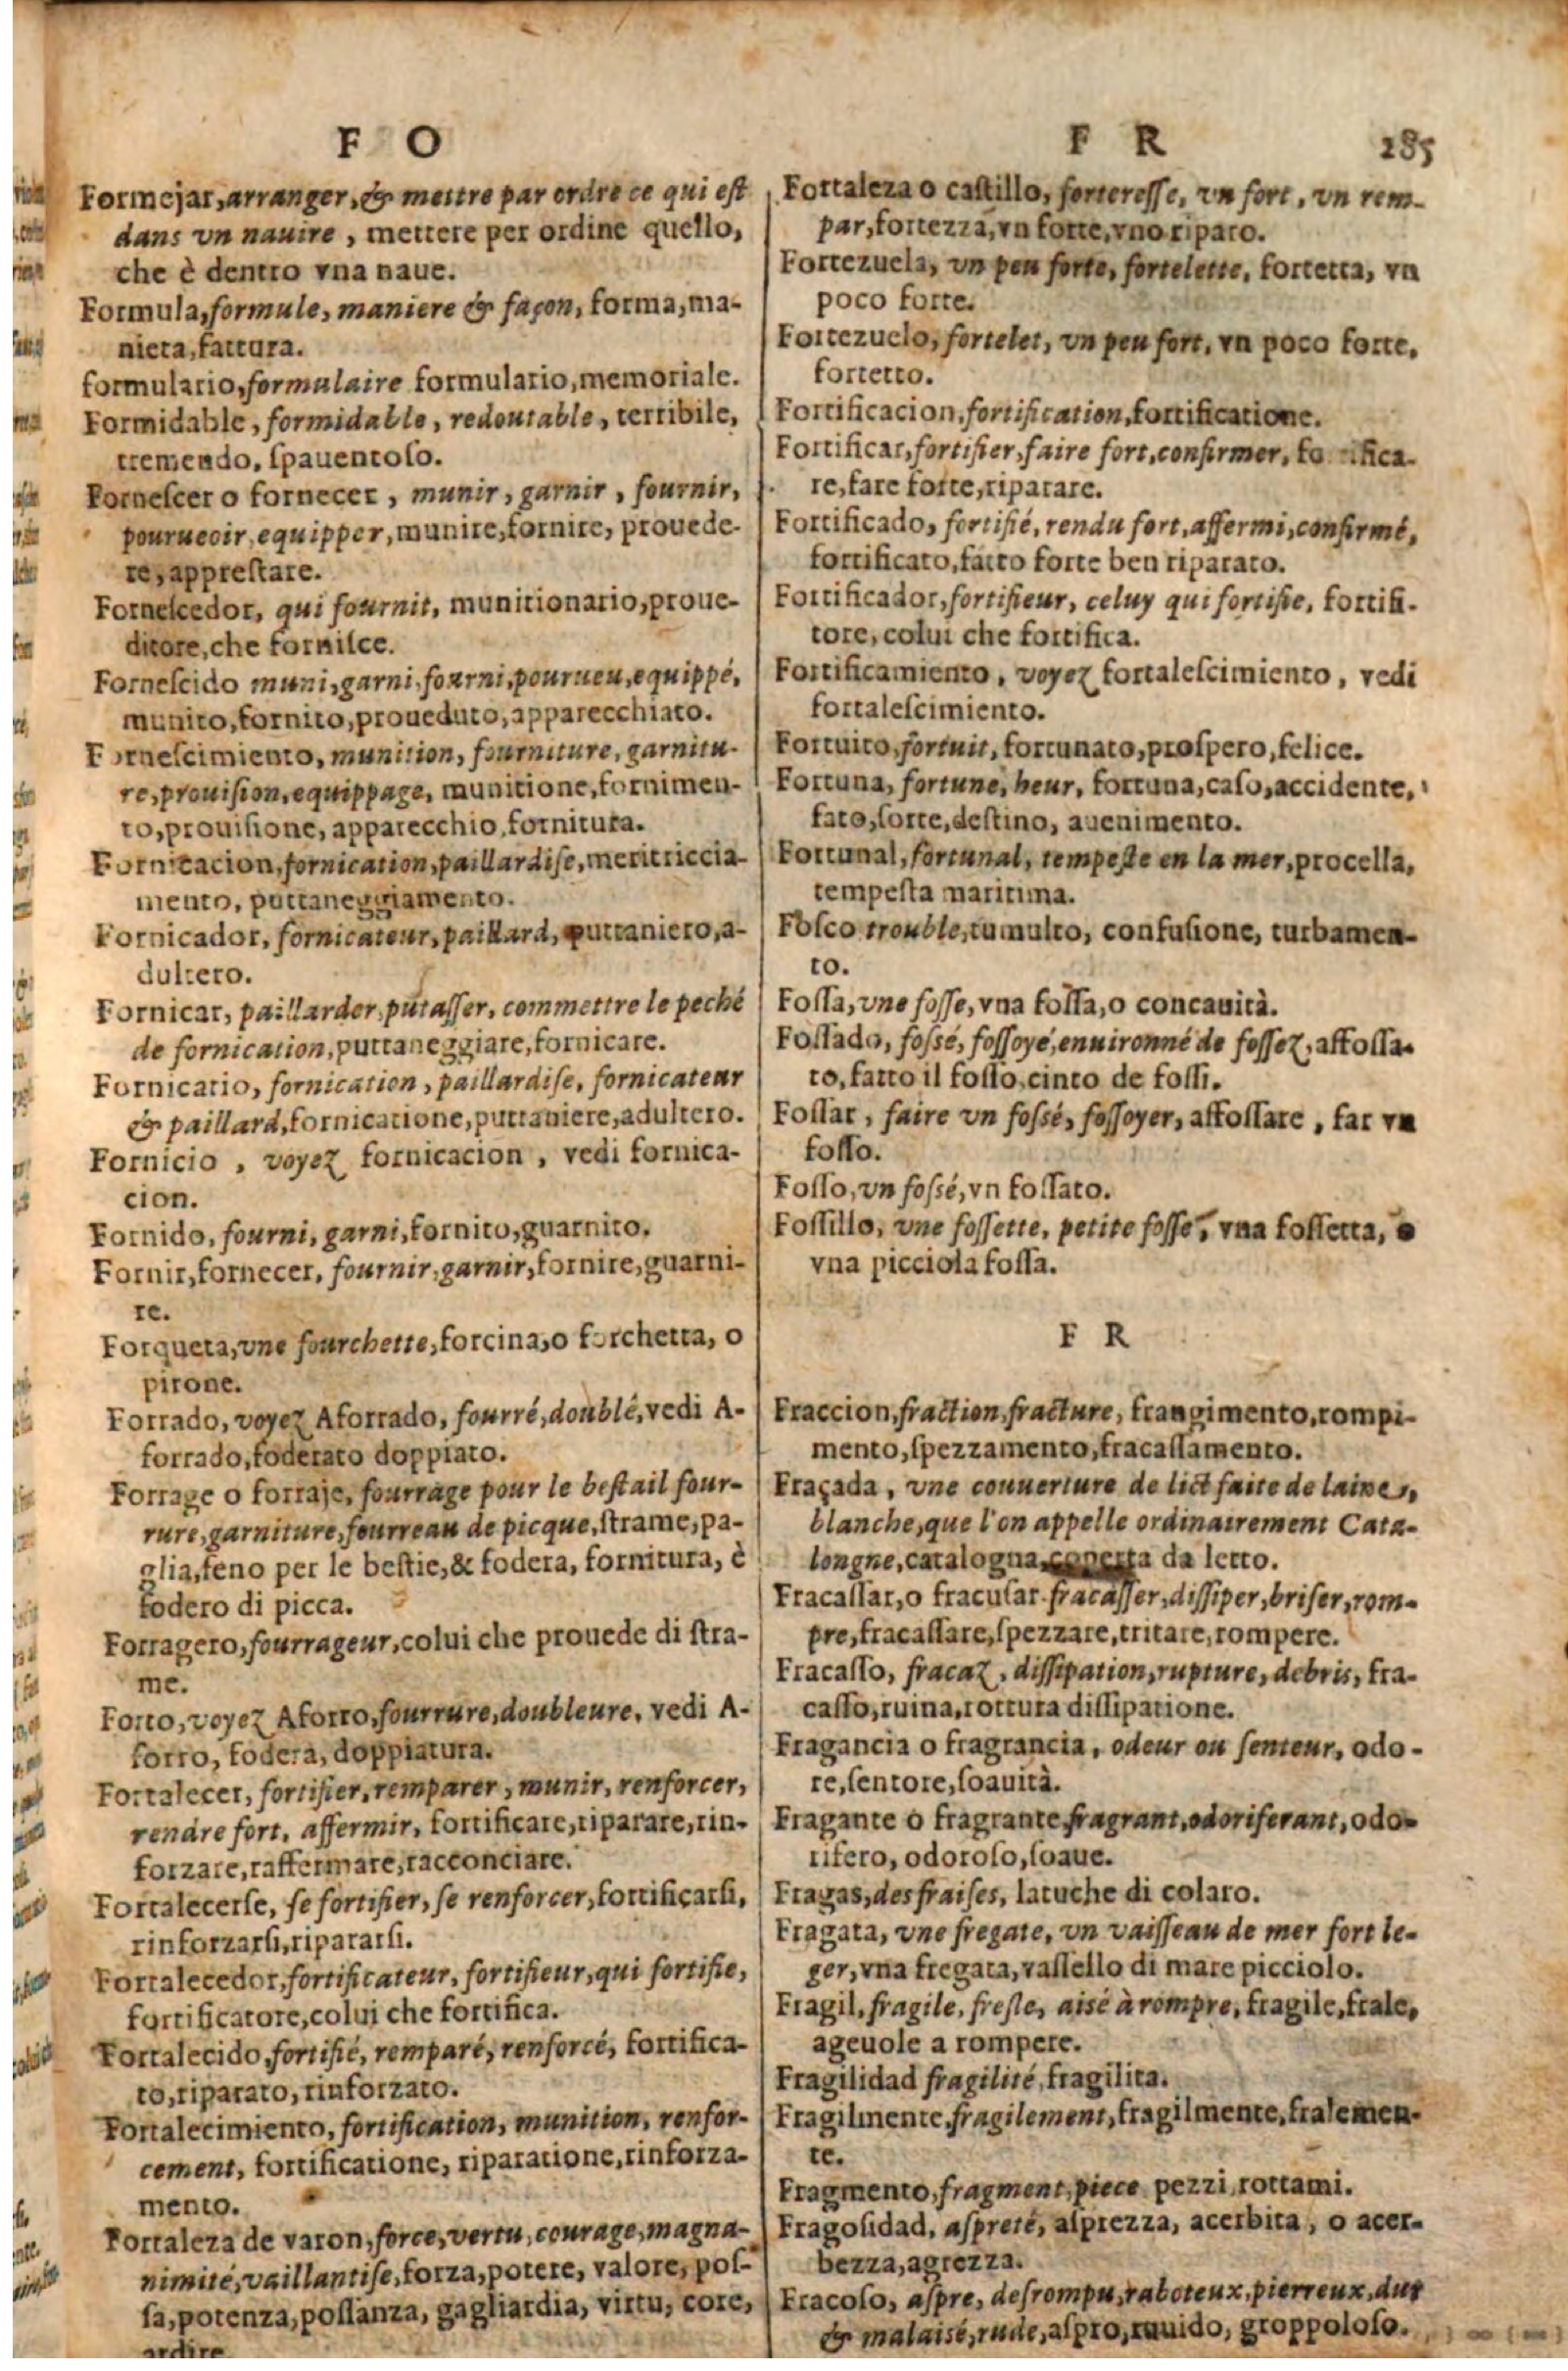 F O
Formejar, arranger, & mettre par ordre ce qui est
dans vn nauire, mettere per ordine quello,
che è dentro vna naue.
Formula, formule, maniere & façon, forma, ma-
niera, fattura.
formulario, formulaire formulario, memoriale.
Formidable, formidable, redoutable, terribile,
tremendo, ſpauentoſo.
Forneſcer o fornecer, munir, garnir, fournir,
pourueoir, equipper, munire, fornire, prouede-
re, appreſtare.
Forneſcedor, qui fournit, munitionario, proue-
ditore, che forniſce.
Forneſcido muni, garni, fourni, pourueu, equippé,
munito, fornito, proueduto, apparecchiato.
Forneſcimiento, munition, fourniture, garnitu-
re, prouiſion, equippage, munitione, fornimen-
to, prouiſione, apparecchio, fornitura.
Fornicacion, fornication, paillardiſe, meritriccia-
mento, puttaneggiamento.
Fornicador, fornicateur, paillard, puttaniero, a-
dultero.
Fornicar, paillarder, putaſſer, commettre le peché
de fornication, puttaneggiare, fornicare.
Fornicario, fornication, paillardiſe, fornicateur
& paillard, fornicatione, puttaniere, adultero.
Fornicio, voyez fornicacion, vedi fornica-
cion.
Fornido, fourni, garni, fornito, guarnito.
Fornir, fornecer, fournir, garnir, fornire, guarni-
re.
Forqueta, vne fourchette, forcina, o forchetta, o
pirone.
Forrado, voyez Aforrado, fourré, doublé, vedi A-
forrado, foderato doppiato.
Forrage o forraje, fourrage pour le beſtail four-
rure, garniture, fourreau de picque, ſtrame, pa-
glia, feno per le beſtie, & fodera, fornitura, è
fodero di picca.
Forragero, fourrageur, colui che prouede di ſtra-
me.
Forro, voyez Aforro, fourrure, doubleure, vedi A-
forro, fodera, doppiatura.
Fortalecer, fortifier, remparer, munir, renforcer,
rendre fort, affermir, fortificare, riparare, rin-
forzare, raffermare, racconciare.
Fortalecerſe, ſe fortifier, ſe renforcer, fortificarſi,
rinforzarſi, ripararſi.
Fortalecedor, fortificateur, fortifieur, qui fortifie,
fortificatore, colui che fortifica.
Fortalecido, fortifié, remparé, renforcé, fortifica-
to, riparato, rinforzato.
Fortalecimiento, fortification, munition, renfor-
cement, fortificatione, riparatione, rinforza-
mento.
Fortaleza de varon, force, vertu, courage, magna-
nimité, vaillantiſe, forza, potere, valore, poſ-
ſa, potenza, poſſanza, gagliardia, virtu, core,
ardire.
F R 285
Fortaleza o caſtillo, fortereſſe, vn fort, vn rem-
par, fortezza, vn forte, vno riparo.
Fortezuela, vn peu forte, fortelette, fortetta, vn
poco forte.
Fortezuelo, fortelet, vn peu fort, vn poco forte,
fortetto.
Fortificacion, fortification, fortificatione.
Fortificar, fortifier, faire fort, confirmer, fo ifica-
re, fare forte, riparare.
Fortificado, fortifié, rendu fort, affermi, confirmé,
fortificato, fatto forte ben riparato.
Fortificador, fortifieur, celuy qui fortifie, fortifi-
tore, colui che fortifica.
Fortificamiento, voyez fortaleſcimiento, vedi
fortaleſcimiento.
Fortuito, fortuit, fortunato, proſpero, felice.
Fortuna, fortune, heur, fortuna, caſo, accidente,
fato, ſorte, deſtino, auenimento.
Fortunal, fortunal, tempeſte en la mer, procella,
tempeſta maritima.
Foſco trouble, tumulto, confuſione, turbamen-
to.
Foſſa, vne foſſe, vna foſſa, o concauità.
Foſſado, foſſé, foſſoyé, enuironné de foſſez, affoſſa-
to, fatto il foſſo, cinto de foſſi.
Foſſar, faire vn foſſé, foſſoyer, affoſſare, far vn
foſſo.
Foſſo, vn foſſé, vn foſſato.
Foſſillo, vne foſſette, petite foſſe, vna foſſetta, o
vna picciola foſſa.
F R
Fraccion, fraction, fracture, frangimento, rompi-
mento, ſpezzamento, fracaſſamento.
Fraçada, vne couuerture de lict faite de laine,
blanche, que l'on appelle ordinairement Cata-
longne, catalogna, coperta da letto.
Fracaſſar, o fracuſar fracaſſer, diſſiper, briſer, rom-
pre, fracaſſare, ſpezzare, tritare, rompere.
Fracaſſo, fracaz, diſſipation, rupture, debris, fra-
caſſo, ruina, rottura diſſipatione.
Fragancia o fragrancia, odeur ou ſenteur, odo-
re, ſentore, ſoauità.
Fragante o fragrante, fragrant, odoriferant, odo-
rifero, odoroſo, ſoaue.
Fragas, des fraiſes, latuche di colaro.
Fragata, vne fregate, vn vaiſſeau de mer fort le-
ger, vna fregata, vaſſello di mare picciolo.
Fragil, fragile, freſle, aisé à rompre, fragile, frale,
ageuole a rompere.
Fragilidad fragilité, fragilita.
Fragilmente, fragilement, fragilmente, fralemen-
te.
Fragmento, fragment, piece pezzi, rottami.
Fragoſidad, aſpreté, aſprezza, acerbita, o acer-
bezza, agrezza.
Fracoſo, aſpre, deſrompu, raboteux, pierreux, dur
& malaisé, rude, aſpro, ruuido, groppoloſo.